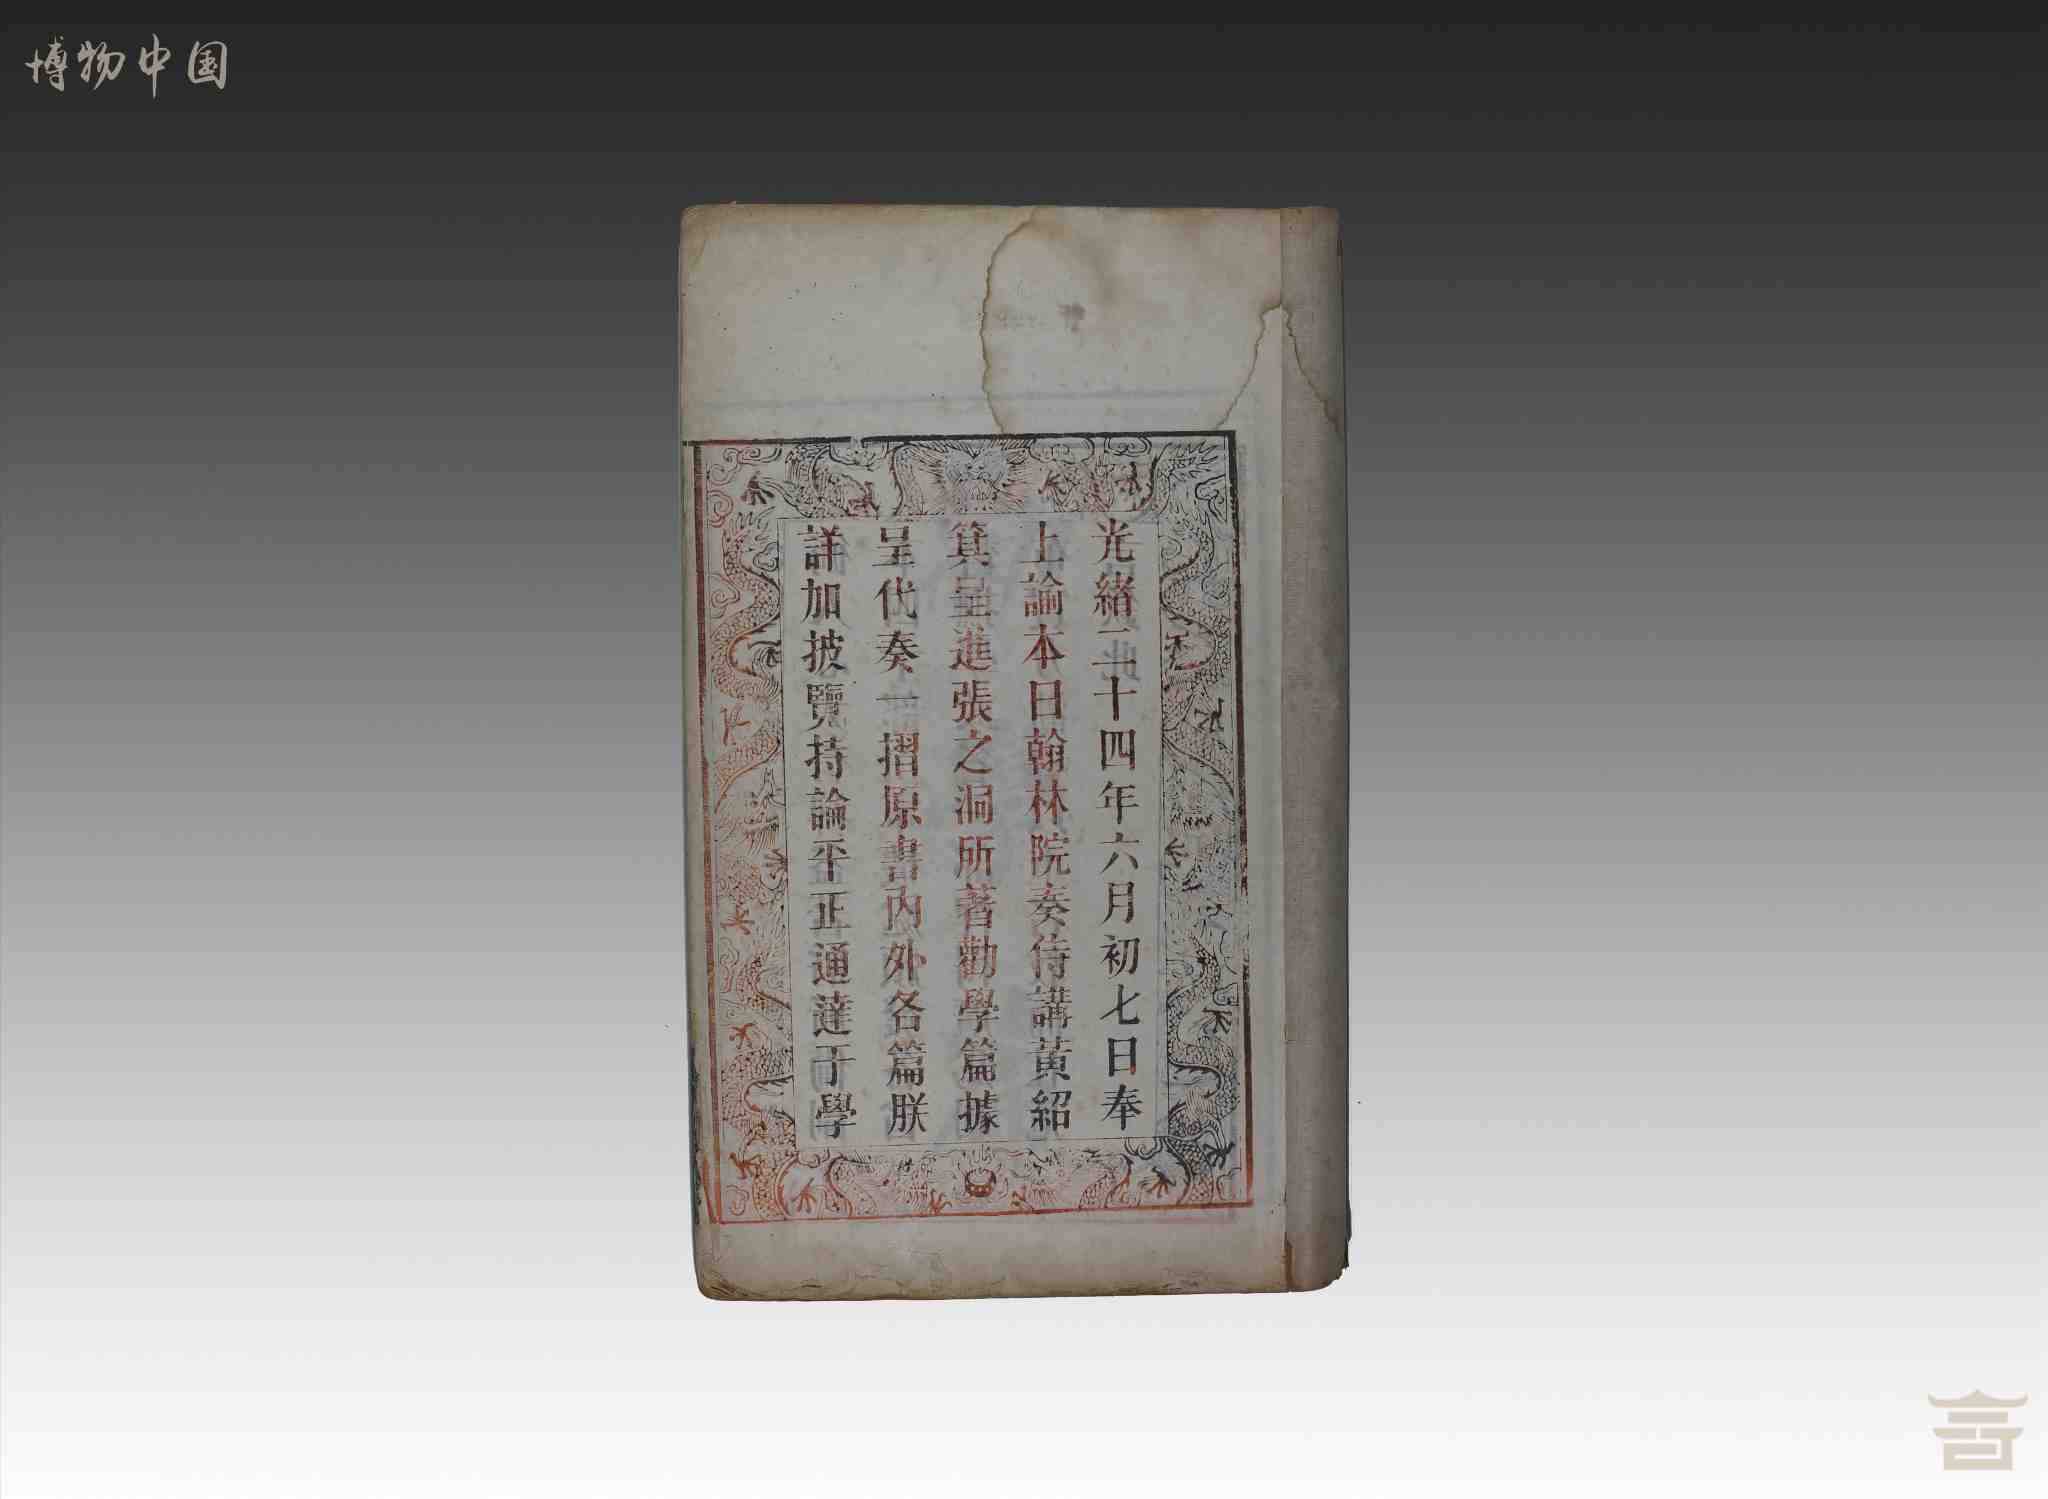 博物中国
光緒二十四年六月初七日奉
上諭本日翰林院奏侍講黃紹
箕呈進張之洞所著勸學篇據
呈代奏一摺原書內外各篇朕
詳加披覽持論平正通達于學